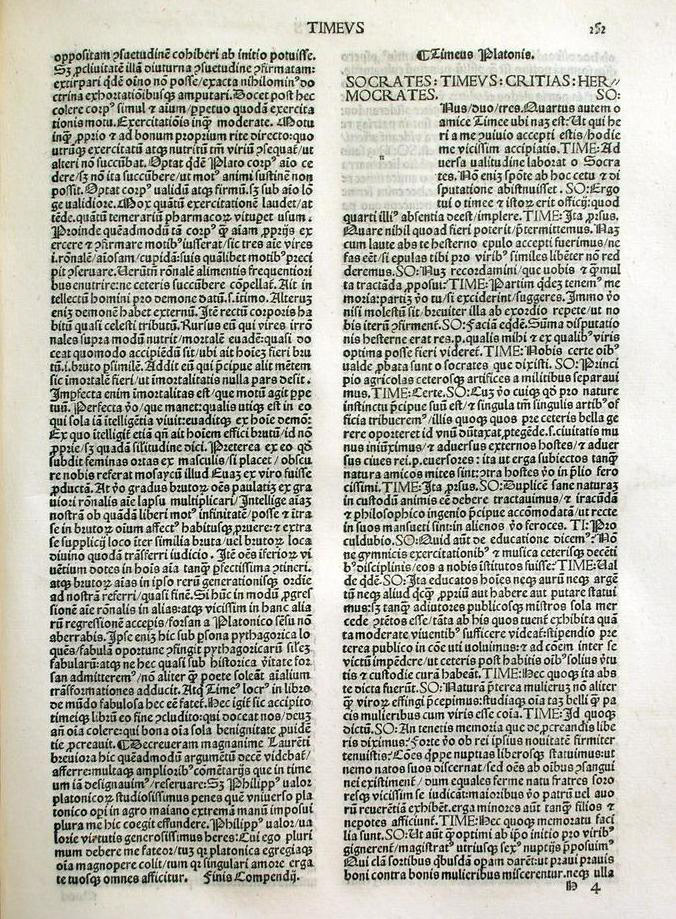 TIMEVS
252
oppositam ꝯsuetudinē cohiberi ab initio potuisse.
Sʒ ꝓcliuitatē illā diuturna ꝯsuetudine ꝯfirmatam:
extirpari qdē oīno nō posse/exacta nihilomin⁹ do
ctrina exhortatiōibusqʒ amputari. Docet post hec
colere corp⁹ simul & aīum/ꝑpetuo quodā exercita
tionis motu. Exercitatiōis inqʒ moderate. Motu
inqʒ ꝓprio & ad bonum proprium rite directo: quo
alteri nō succūbat. Optat qdē Plato corp⁹ aīo ce
dere/sʒ nō ita succūbere/ut mot⁹ animi sustinē non
possit. Optat corp⁹ ualidū atqʒ firmū. sʒ sub aīo lō
ge ualidiore. Mox quātū exercitationē laudet/at
Proinde quēadmodū tā corp⁹ qʒ aīam ꝓprijs ex
ercere & ꝯfirmare motib⁹ iusserat/sic tres aīe vires
i.rōnalē/aīosam/cupidā: suis quālibet motib⁹ preci
pit ꝯseruare. Uerūtn̄ rōnalē alimentis frequentiori
bus enutrire: ne ceteris succūbere cōpellat. Ait in
tellectū homini pro demone datū. s. itimo. Alteruʒ
eniʒ demonē habet externū. Itē rectū corporis ha
bitū quasi celesti tributū. Rursus eū qui vires irrō
nales supra modū nutrit/mortalē euadē: quasi do
ceat quomodo accipiēdū sit/ubi ait hoīeʒ fieri bru
tū. i. bruto ꝓsimilē. Addit eū qui p̄cipue alit mētem
sic imortalē fieri/ut imortalitatis nulla pars desit.
Impfecta enim imortalitas est/que motū agit ꝑpe
tuū. Perfecta ꝟo/que manet: qualis utiqʒ est in eo
qui sola iā itelligētia viuit: euaditqʒ ex hoīe demō:
Ex quo itelligit etiā qñ ait hoīem effici brutū/id nō
ꝓprie/sʒ quadā silitudine dici. Preterea ex eo qd
subdit feminas ortas ex masculis/si placet/obscu
re nobis referat mosaycū illud Euaʒ ex viro fuisse
ꝓductā. At ꝟo gradus brutoꝝ oēs paulati ex gra
uiori rōnalis aīe lapsu multiplicari/Intellige aīaʒ
nostrā ob quādā liberi mot⁹ infinitatē/posse & itra
se in brutoꝝ oīum affect⁹ habitusqʒ ꝓruere: & extra
se supplicij loco iter similia bruta/uel brutoꝝ loca
diuino quodā trāsferri iudicio. Itē oēs iferioꝝ vi
uētium dotes in hoīs aīa tanqʒ ꝑfectissima ꝯtineri.
atqʒ brutoꝝ aīas in ipso rerū generationisqʒ ordīe
ad nostrā referri/quasi finē. Si hūc in modū ꝓgres
sionē aīe rōnalis in alias: atqʒ vicissim in hanc alia
rū regressionē accepis/forsan a Platonico sēsu nō
aberrabis. Ipse eniʒ hic sub psona pythagorica lo
quēs/fabulā oportune ꝯfingit pythagoricarū silēʒ
fabularū: atqʒ ne hec quasi sub historica ꝟitate for
san admitterem⁹/no aliter qʒ poete soleāt aīalium
trāsformationes adducit. Atqʒ Time⁹ locr⁹ in libro
de mūdo fabulosa hec eē fatet. Hec igit̄ sic accipito
timeiqʒ librū eo fine ꝯcludito: qui doceat nos/deuʒ
añ oīa colere: qui bona oīa sola benignitate ꝓuidē
tie ꝓcreauit. ¶Decreueram magnanime Laurēti
breuiora hic quēadmodū argumētū decē videbat/
afferre: multaqʒ amplioribꝰ comētarijs que in time
um iā designauim⁹/reseruare: Sʒ Philipp⁹ ualoꝝ
platonicoꝝ studiosissimus penes quē vniuerso pla
tonico opi in agro maiano extremā manū imposui
plura me hic coegit effundere. Philipp⁹ ualor/ua
lorie virtutis generosissimus heres: Cui ego pluri
mum debere me fateor/tuʒ qꝛ platonica egregiaqʒ
oīa magnopere colit/tum qꝛ singulari amore erga
te tuosqʒ omnes afficitur. Finis Compendij.
¶Timeus Platonis.
SOCRATES: TIMEVS: CRITIAS: HER//
MOCRATES. SO:
Nus/duo/tres. Quartus autem o
amice Timee ubi naʒ est: Ut qui he
ri a me ꝯuiuio accepti estis/hodie
me vicissim accipiatis. TIME: Ad
uersa ualitudine laborat o Socra
tes. Nō eniʒ spōte ab hoc cetu & di
sputatione abstinuisset. SO: Ergo
tui o timee & istoꝝ erit officij: quod
quarti illi⁹ absentia deest/implere. TIME: Ita ꝓrsus.
Quare nihil quod fieri poterit/ꝑtermittemus. Naʒ
cum laute abs te hesterno epulo accepti fuerimus/ne
fas eēt/si epulas tibi pro virib⁹ similes libēter nō red
deremus. SO: Nuʒ recordamini/que uobis & qʒ mul
ta tractāda ꝓposui: TIME: Partim qdeʒ tenem⁹ me
moria: partiʒ ꝟo tu/si exciderint/suggeres. Immo ꝟo
nisi molestū sit/breuiter illa ab exordio repete/ut no
bis iterū ꝯfirment. SO: Faciā eqdē. Sūma disputatio
nis hesterne erat res.p. qualis mihi & ex qualib⁹ viris
optima posse fieri videret. TIME: Nobis certe oīb⁹
ualde ꝓbata sunt o socrates que dixisti. SO: Princi
pio agricolas ceterosqʒ artifices a militibus separaui
mus. TIME: Certe. SO: Cuʒ ꝟo cuiqʒ qd pro nature
instinctu p̄cipue suū est/& singula tm̄ singulis artib⁹ of
ficia tribuerem⁹/illis quos quos pre ceteris bella ge
rere oporteret id vnū dūtaxat ꝓtegēde. s. ciuitatis mu
nus iniūximus/& aduersus externos hostes/& aduer
sus ciues rei.p. euersores: ita ut erga subiectos tanqʒ
natura amicos mites sint: ꝯtra hostes ꝟo in p̄lio fero
cissimi. TIME: Ita ꝓrsus. SO: Duplicē sane naturaʒ
in custodū animis eē debere tractauimus/& iracūdā
& philosophico ingenio p̄cipue accōmodatā/ut recte
in suos mansueti sint: in alienos ꝟo feroces. TI: Pro
culdubio. SO: Quid aūt de educatione dicem⁹: Nō
ne gymnicis exercitationib⁹ & musica ceterisqʒ decēti
b⁹ disciplinis/eos a nobis institutos fuisse: TIME: Ual
de qdē. SO: Ita educatos hoīes neqʒ aurū neqʒ argē
tū neqʒ aliud qcqʒ ꝓpriū aut habere aut putare statui
mus: sʒ tanqʒ adiutores publicosqʒ mīstros sola mer
cede ꝯtētos esse/tāta ab his quos tuent̄ exhibita quā
ta moderate viuentib⁹ sufficere videat: stipendio pre
terea publico in cōe uti uoluimus: & ad cōem inter se
victū impēdere/ut ceteris post habitis oīb⁹ solius ꝟtu
tis & custodie curā habeāt. TIME: Hec quoqʒ ita abs
te dicta fuerūt. SO: Naturā p̄terea mulieruʒ nō aliter
qʒ viroꝝ effingi p̄cepimus: studiaqʒ oīa taʒ belli qʒ pa
cis mulieribus cum viris esse cōia. TIME: Id quoqʒ
dictū. SO: An tenetis memoria que de ꝓcreandis libe
ris diximus: Forte ꝟo ob rei ipsius nouitatē firmiter
tenuistis: Cōes qppe nuptias liberosqʒ statuimus: ut
nemo natos suos discernat/sed oēs ab oībus ꝯsangui
nei existiment/dum equales ferme natu fratres soro
resqʒ vicissim se iudicāt: maioribus ꝟo patrū uel auo
rū reuerētiā exhibēt. erga minores aūt tanqʒ filios &
nepotes afficiunt. TIME: Hec quoqʒ memoratu faci
lia sunt. SO: Ut aūt qʒ optimi ab ip̄o initio pro virib⁹
gignerent/magistrat⁹ utriusqʒ sex⁹ nuptijs p̄posuim⁹
Qui clā sortibus qbusdā opam darēt: ut praui prauis
boni contra bonis mulieribus miscerentur. neqʒ ulla
H 4